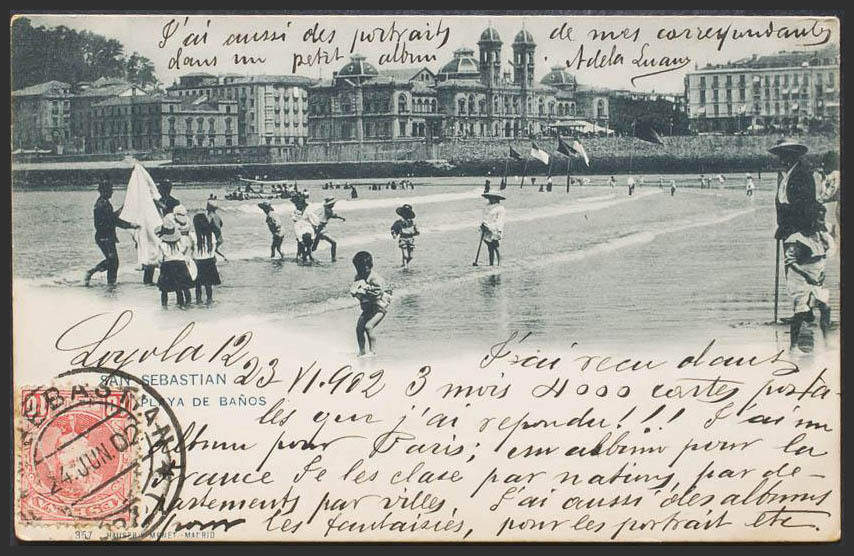 J'ai aussi des portraits de mes correspondantes
dans un petit album Adela
Loyola 12
23 VI. 902
SAN SEBASTIAN
PLAYA DE BAÑOS
SEBASTIAN
24 JUN 02
J'ai reçu dans
3 mois 4000 cartes posta-
les que j'ai repondu!!! J'ai un
album pour Paris; un album pour la
France Je les clase par nations, par de-
partements par villes. J'ai aussi des albums
pour les fantaisies, pour les portrait etc.
357 HAUSER Y MENET.-MADRID